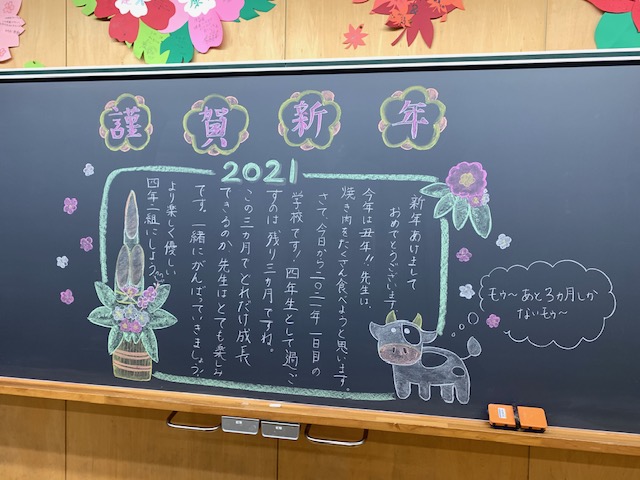 謹賀新年
2021
新年あけまして
おめでとうございます。
今年は丑年!!先生は、
焼き肉をたくさん食べようと思います。
さて、今日から二〇二一年一日目の
学校です!四年生として過ご
すのは残り三カ月ですね。
この三カ月でどれだけ成長
できるのか、先生はとても楽しみ
です。一緒にがんばっていきましょう!
より楽しく優しい
四年一組にしよう。
モゥ〜あと3カ月しか
ないモゥ〜